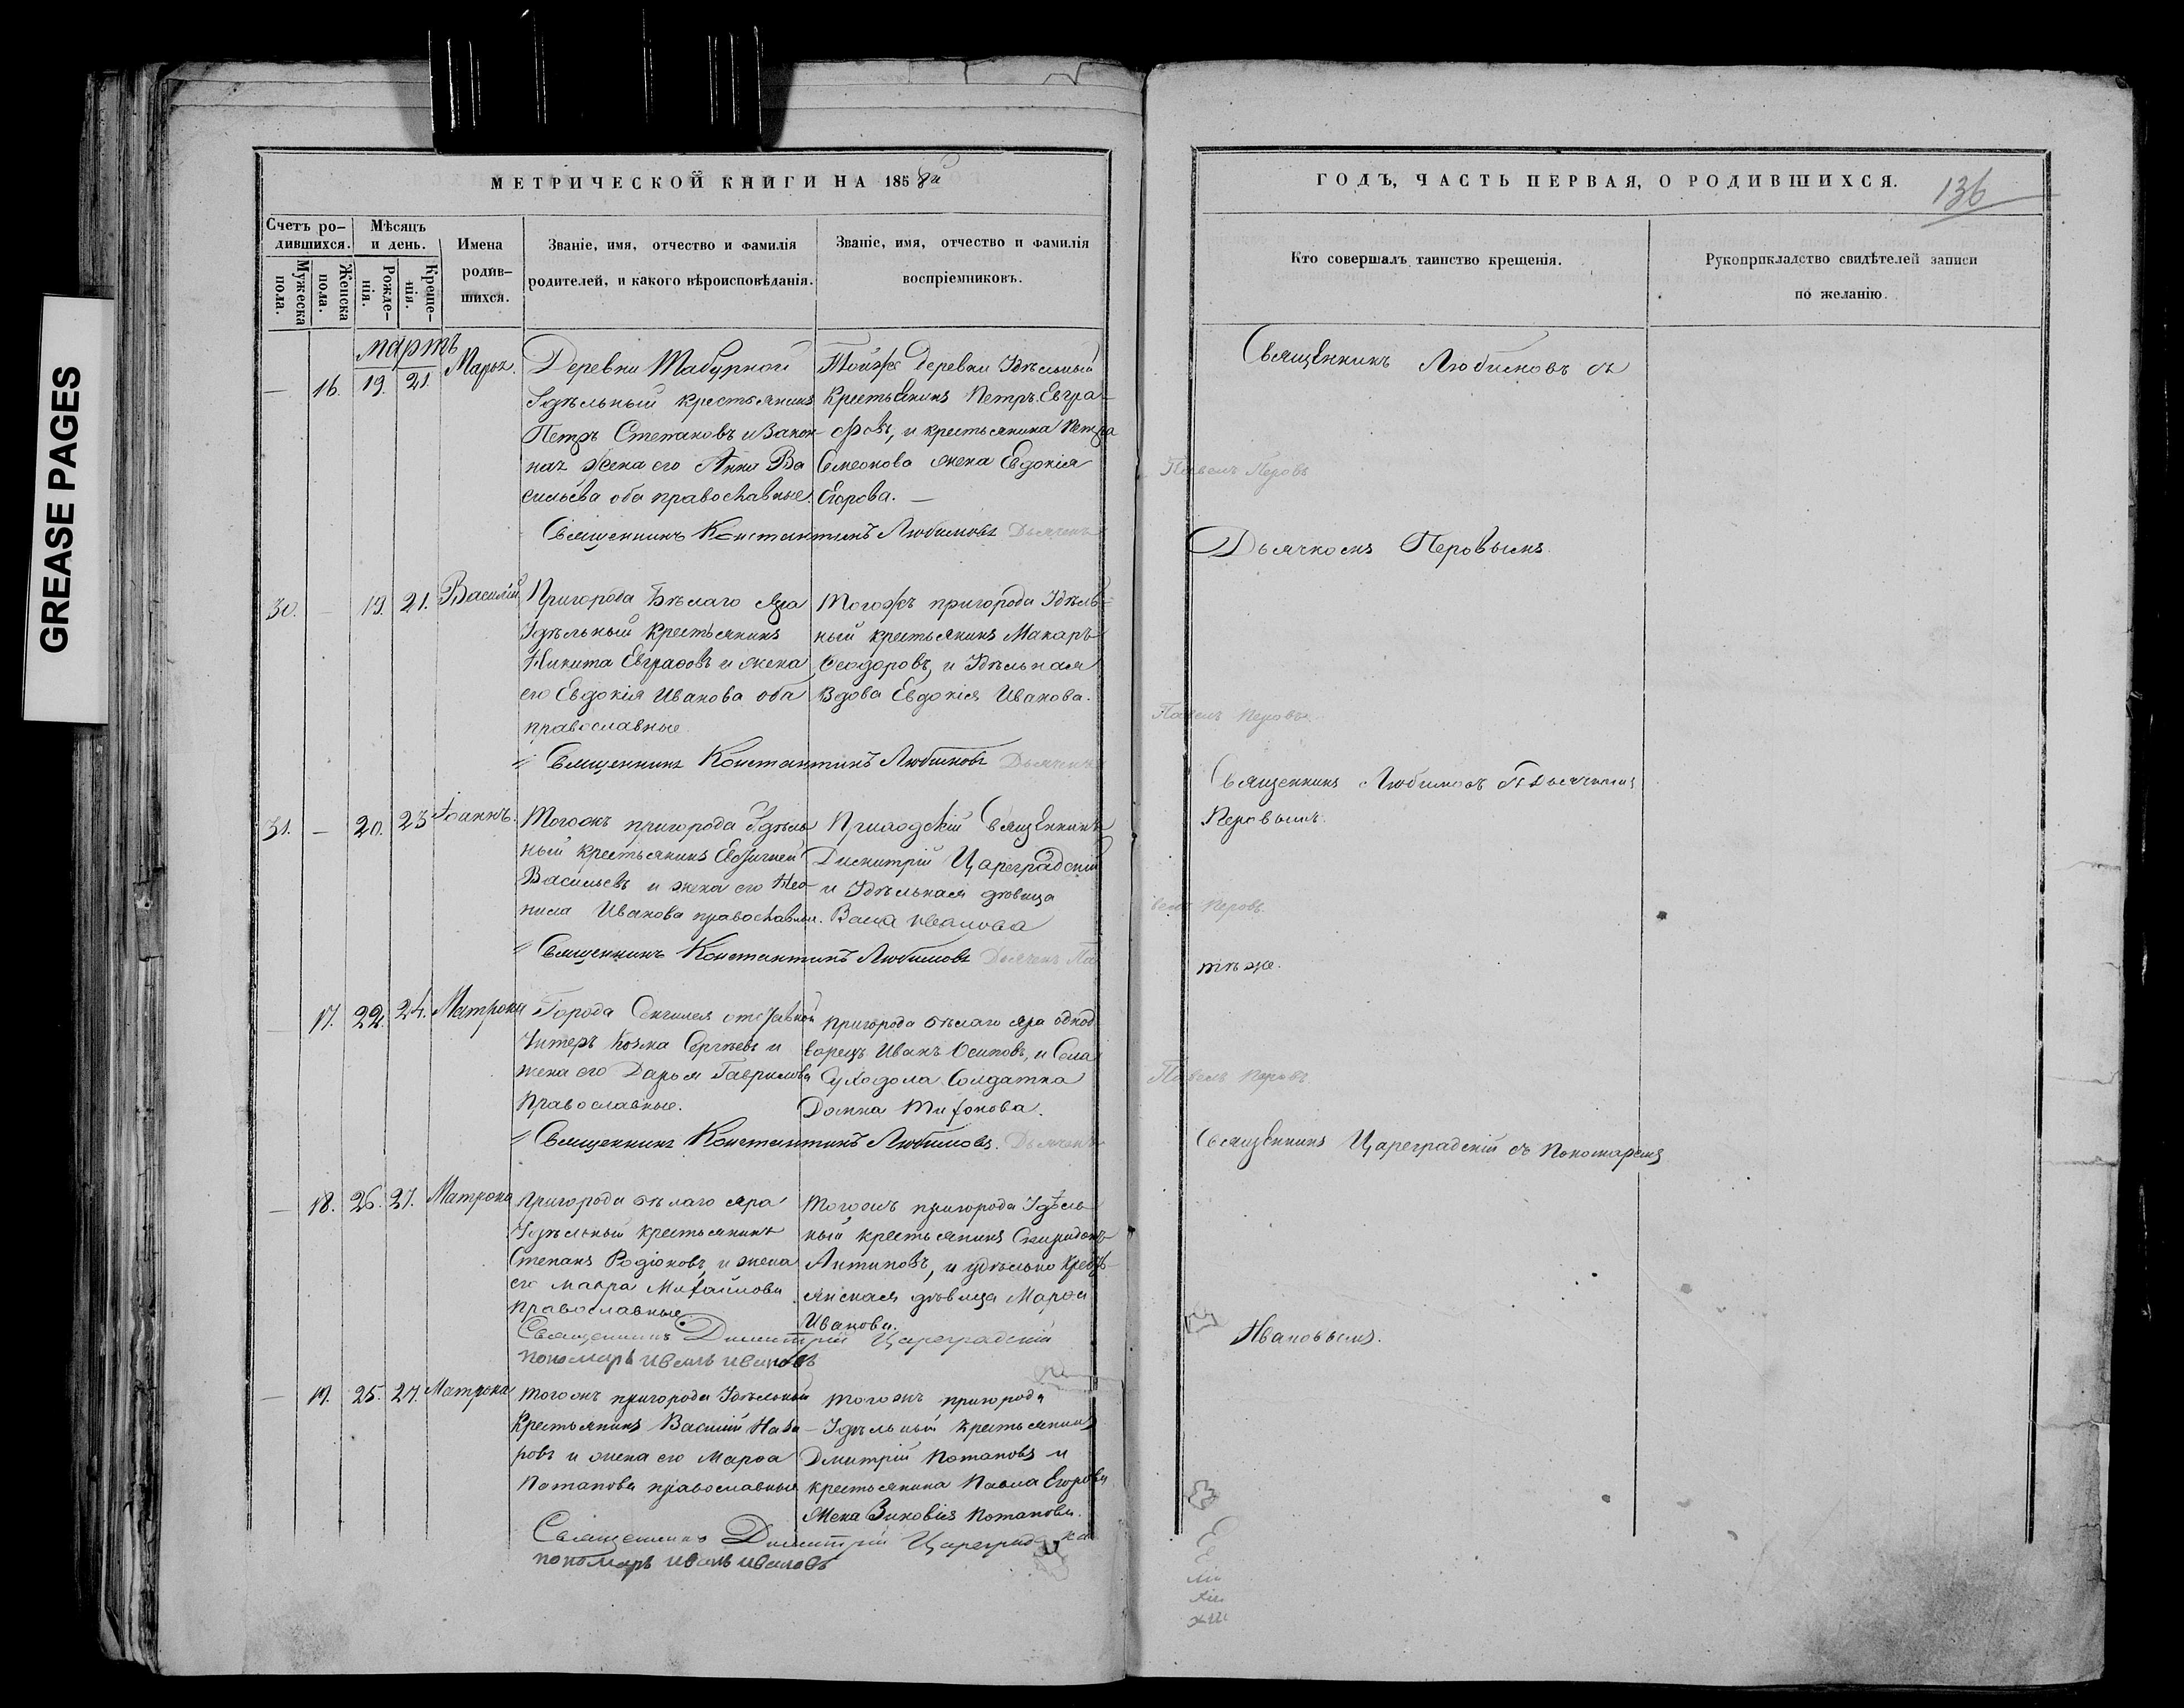 GREASE PAGES
МЕТРИЧЕСКОЙ КНИГИ НА 1858й
Счетъ ро-
дившихся.
Мужеска
пола.
Женска
пола.
Мѣсяцъ
и день.
Рожде-
нія.
Креще-
нія.
Имена
родив-
шихся.
Званіе, имя, отчество и фамилія
родителей, и какого вѣроисповѣданія.
Званіе, имя, отчество и фамилія
воспріемниковъ.
мартъ
— 16. 19. 21
Деревни Табурной
Удѣльный крестьянинъ
Петръ Степановъ и Закон
ная жена его Анна Ва
сильева оба православные.
Тойже деревни Удѣльный
Крестьянинъ Петръ Евгра-
фовъ, и крестьянина Петра
Симеонова жена Евдокія
Егорова. —
Священникъ Константинъ Любимовъ Дьячекъ
Павелъ Перовъ
30. — 19. 21. Василій
Пригорода Бѣлаго Яра
Удѣльный Крестьянинъ
Никита Евграфовъ и жена
его Евдокія Иванова оба
православные
Тогожъ пригорода Удѣль-
ный крестьянинъ Макаръ
Ѳеодоровъ, и Удѣльная
Вдова Евдокія Иванова.
Священникъ Константинъ Любимовъ Дьячекъ
Павелъ Перовъ.
31. — 20. 23 Іоаннъ.
Тогожъ пригорода Удѣль
ный крестьянинъ
Васильевъ и жена его Нео-
нила Иванова православные.
Приходскій Священникъ
Димитрій Цареградскій
и Удѣльная дѣвица
Васса Иванова
Священникъ Константинъ Любимовъ Дьячекъ Па
велъ Перовъ.
17. 22. 24. Матрона
Города Сенгилея отставной
Унтеръ Козма Сергѣевъ и
жена его Дарья Гаврилова
Православные.
Пригорода Бѣлаго Яра однод
ворецъ Иванъ Осиповъ, и Села
Суходола Солдатка
Домна Тихонова.
Священникъ Константинъ Любимовъ. Дьячекъ
Павелъ Перовъ
— 18. 26. 27. Матрона
Пригорода бѣлаго яра
Удѣльный крестьянинъ
Степанъ Родіоновъ, и жена
его Мавра Михайлова
православные
Тогожъ пригорода Удѣль
ный крестьянинъ Спиридонъ
Антиповъ, и удѣльно крестъ-
янская дѣвица Марѳа
Иванова.
Священникъ Димитрій Цареградскій
пономарь Иванъ Ивановъ
— 19. 25. 27. Матрона
Тогожъ пригорода Удѣльный
Крестьянинъ Василій Наза-
ровъ и жена его Марѳа
Потапова православные
Тогожъ пригорода
Удѣльный крестьянинъ
Дмитрій Потаповъ и
крестьянина Павла Егорова
жена Зиновія Потапова.
Священникъ Димитрій
пономарь Иванъ Ивановъ
ГОДЪ, ЧАСТЬ ПЕРВАЯ, О РОДИВШИХСЯ.
136
Кто совершалъ таинство крещенія.
Рукоприкладство свидѣтелей записи
по желанію.
Священникъ Любимовъ съ
Дьячкомъ Перовымъ.
Священникъ Любимовъ съ Дьячкомъ
Перовымъ.
тѣ же.
Священникъ Цареградскій съ Пономаремъ
Ивановымъ.